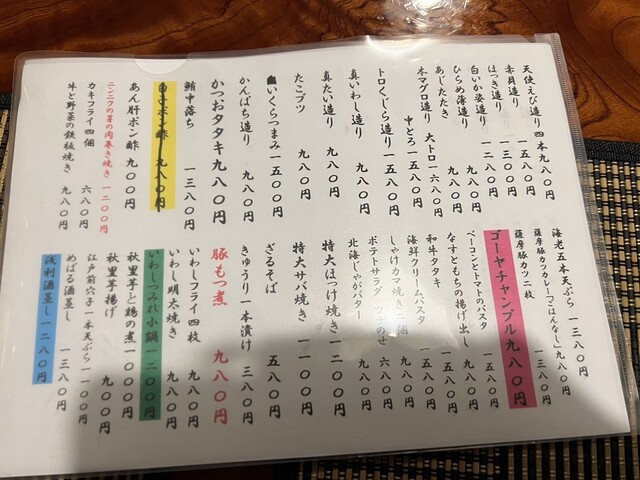 天使えび造り 四本 九八〇円
赤貝造り 一五八〇円
ほっき造り 一三〇〇円
白いか姿造り 一二八〇円
ひらめ薄造り 九八〇円
あじたたき 九八〇円
本マグロ造り 大トロ 一六八〇円
中とろ 一五八〇円
トロくじら造り 一五八〇円
真いわし造り 九八〇円
真たい造り 九八〇円
たこブツ 九八〇円
いくらつまみ 一五〇〇円
かんぱち造り 九八〇円
かつおタタキ 九八〇円
鮪中落ち 一三八〇円
白子ポン酢 九八〇円
あん肝ポン酢 九〇〇円
ニンニクの芽の肉巻き焼き 一二〇〇円
カキフライ四個 六八〇円
牛と野菜の鉄板焼き 九八〇円
海老五本天ぷら 一三八〇円
薩摩豚カツカレー「ごはんなし」九八〇円
薩摩豚カツ二枚 一三八〇円
ゴーヤチャンプル 九八〇円
ベーコンとトマトのパスタ 一五八〇円
なすともちの揚げ出し 九八〇円
和牛タタキ 一五八〇円
海鮮クリームパスタ 一五八〇円
しゃけカマ焼き二個 九八〇円
ポテトサラダ ツナのせ 六八〇円
北海じゃがバター 九八〇円
特大ほっけ焼き 一二〇〇円
特大サバ焼き 一一〇〇円
ざるそば 五八〇円
きゅうり一本漬け 三八〇円
豚もつ煮 九八〇円
いわしフライ四枚 九八〇円
いわし明太焼き 九八〇円
いわしつみれ小鍋 一二〇〇円
秋里芋と鶏の煮 一〇〇〇円
秋里芋揚げ 九〇〇円
江戸前穴子一本天ぷら 一一〇〇円
めばる酒蒸し 一三八〇円
浅利酒蒸し 一二八〇円